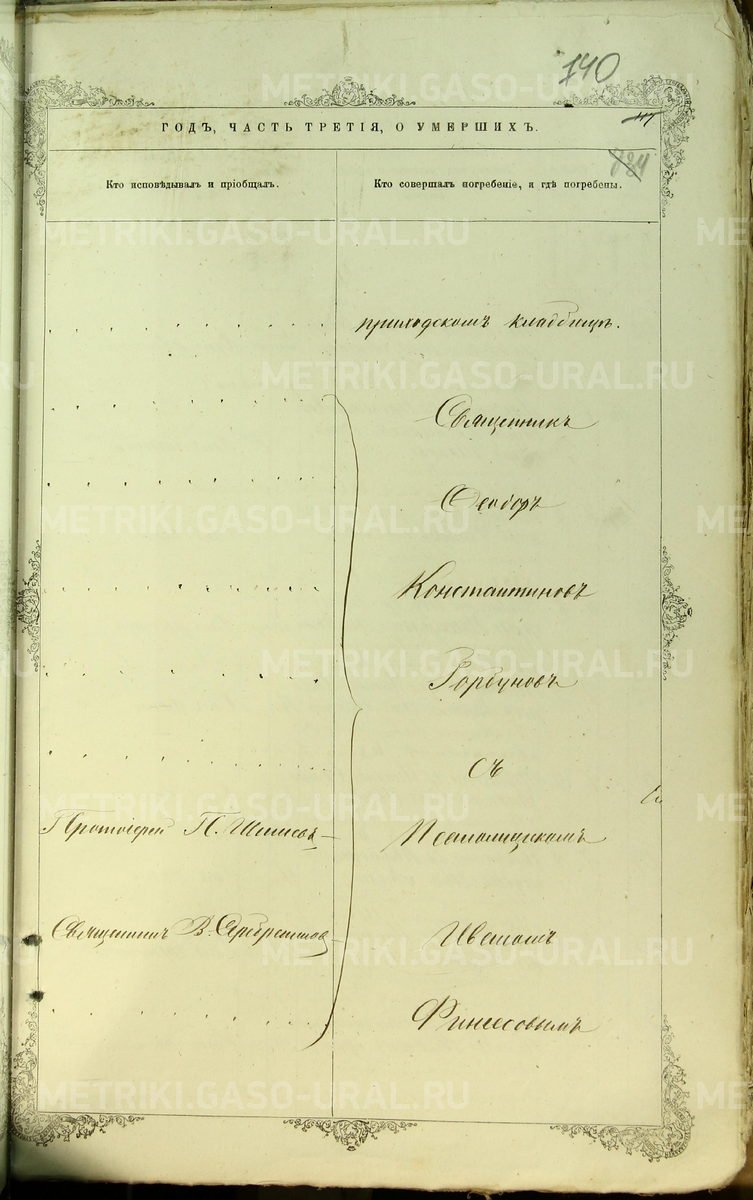 140
784
ГОДЪ, ЧАСТЬ ТРЕТІЯ, О УМЕРШИХЪ.
Кто исповѣдывалъ и пріобщалъ.
Кто совершалъ погребеніе, и гдѣ погребены.
приходскомъ кладбищѣ.
Священникъ
Ѳеодоръ
Константиновъ
Горбуновъ
съ
Протоіерей П. Шишевъ
Псаломщикомъ
Священникъ В. Серебренников
Иваномъ
Финеесовымъ
METRIKI.GASO-URAL.RU